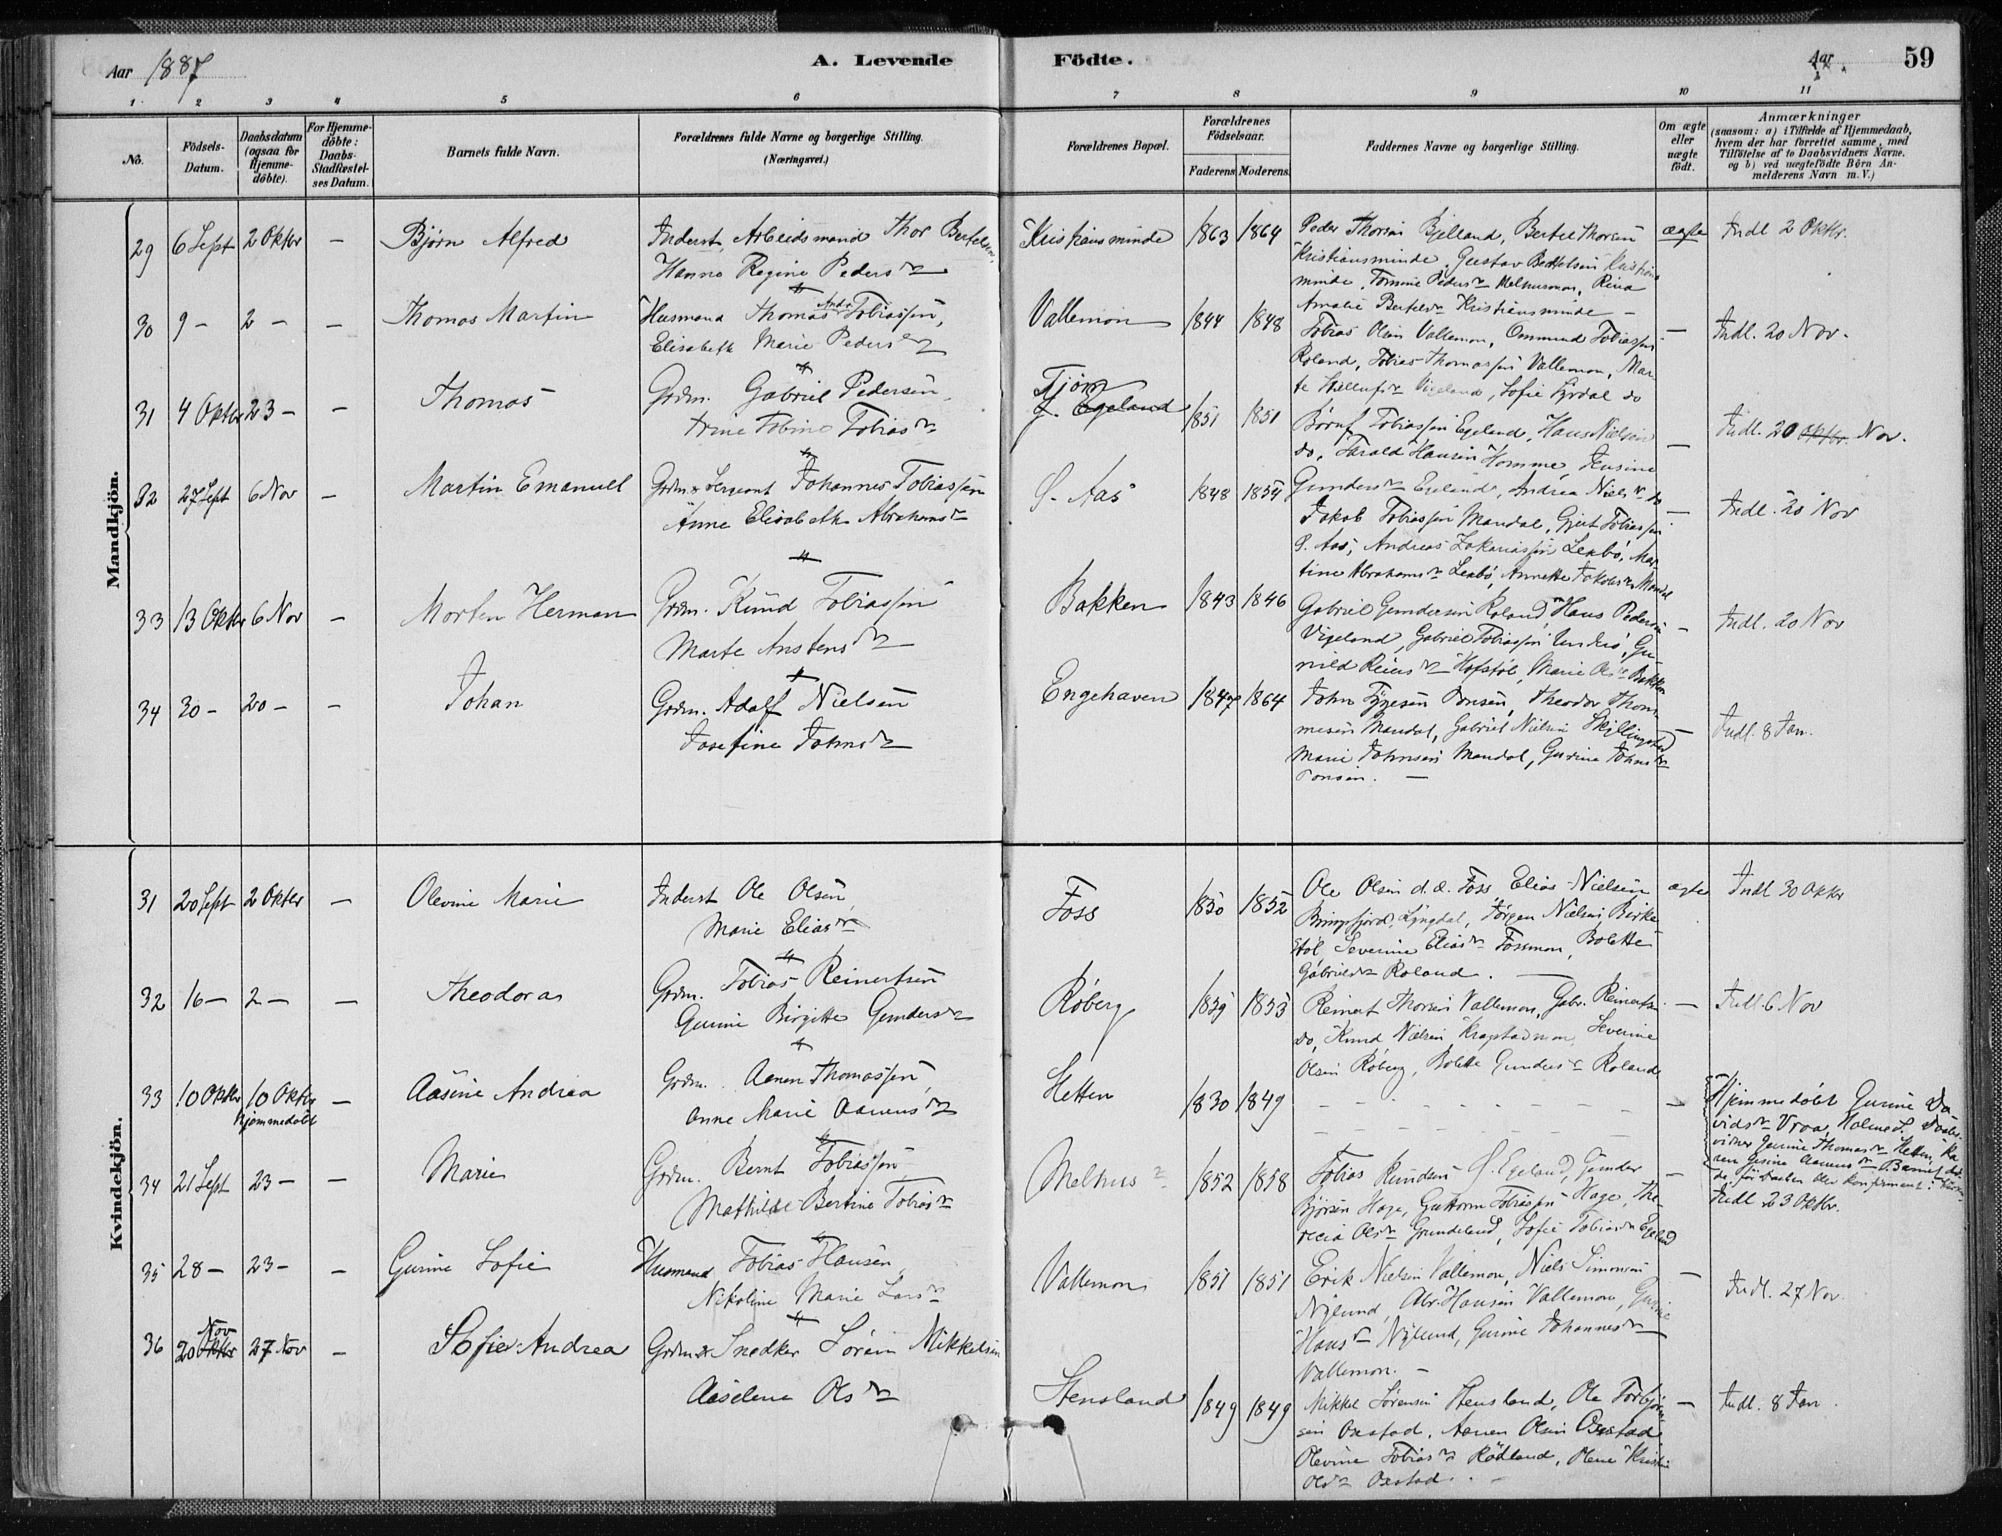 Aar 1887
A. Levende
Födte.
Aar
59
1. 2 3 4 5 6 7 8 9 10 11
No.
Födsels-Datum.
Daabsdatum (ogsaa for Hjemme-döbte).
For Hjemme-döbte: Daabs-Stadfæstel-ses Datum.
Barnets fulde Navn.
Forældrenes fulde Navne og borgerlige Stilling. (Næringsvei.)
Forældrenes Bopæl.
Forældrenes Födselsaar.
Faderens Moderens.
Faddernes Navne og borgerlige Stilling.
Om ægte eller uægte födt.
Anmærkninger
(saasom: a) i Tilfælde af Hjemmedaab,
hvem der har forrettet samme, med
Tilföielse af to Daabsvidners Navne.
og b) ved uægtefödte Börn An-
melderens Navn m. V.)
Mandkjön.
29 6 Sept 2 Oktbr — Bjørn Alfred
Inderst, Arbeidsmand Thor Bertelsen,
Hanne Regine Pedersdr
Kristiansminde 1863 1864
Peder Thorsen Bjelland, Bertel Thorsen
Kristiansminde, Gustav Bertelsen Kristians
minde, Tomine Pedersdr Melhusmon,
Amalie Bertelsdr Kristiansminde —
ægte Indl 2 Oktbr.
30 9 — 2 — — Thomas Martin
Husmand Thomas Andr Tobiassen,
Elisabeth Marie Pedersdr
Vallemon 1844 1848
Tobias Olsen Vallemon, Ommund Tobiassen
Roland, Tobias Thomassen Vallemon, Mar-
te Vigeland, Sofie do
— Indl. 20 Nov.
31 4 Oktbr 23 — — Thomas
Grdm. Gabriel Pedersen,
Trine Tobine Tobiasdr
Tjøm
Ø. Egeland 1851 1851
Børuf Tobiassen Egeland, Hans Nielsen
do, Harald Hansen Homme,
Gundersdr Egeland, Andrea Nielsdr do
— Indl. 20 Oktbr. Nov.
32 27 Sept 6 Nov — Martin Emanuel
Grdm & Sergeant Johannes Tobiassen
Anne Elisabeth Abrahamsdr
Ø. Aas 1848 1854
Jakob Tobiassen Mandal, Gjert Tobiassen
Ø. Aas, Andreas Zakariassen Lenbø, Mar-
tine Abrahamsdr Lenbø, Annette Jakobsdr Mandal
— Indl. 20 Nov
33 13 Oktbr 6 Nov — Morten Herman
Grdm. Knud Tobiassen
Marte Anstensdr
Bakken 1843 1846
Gabriel Gundersen Roland, Hans Pedersen
Vigeland, Gabriel Tobiassen Gu-
nild Hofstøl, Marie Olsdr Bakken
— Indl. 20 Nov
34 30 — 20 — — Johan
Grdm. Adolf Nielsen
Josefine Johnsdr
Engehaven 1847 1864
John Tonsen, Theodor Thom-
mesen Mandal, Gabriel Nielsen
Marie Johnsen Mandal, Gurine Johnsdr
Tonsen. —
— Indl. 8 Jan.
Kvindekjön.
31 20 Sept 2 Oktbr — Olevine Marie
Inderst Ole Olsen,
Marie Eliasdr
Foss 1850 1852
Ole Olsen d. æ. Foss, Elias Nielsen
Lyngdal, Jørgen Nielsen Birke-
støl, Severine Eliasdr Fossmon, Bolette
Gabrielsdr Roland. —
ægte Indl 30 Oktbr
32 16 — 2 — — Theodora
Grdm. Tobias Reinertsen
Gurine Birgitte Gundersdr
Røberg 1859 1853
Reinert Thorsen Vallemon, Gabr. Reinertsen
do, Knud Nielsen Kragstadmon, Severine
Olsen Røberg, Bolette Gundersdr Roland
— Indl. 6 Nov
33 10 Oktbr 10 Oktbr Hjemmedøbt — Aasine Andrea
Grdm. Aanen Thomassen,
Anne Marie Aanensdr
Hetten 1830 1849
— Hjemmedøbt Gurine Da-
vidsdr Vraa, Holme S. Daabs-
vidner Gurine Thomasdr Hetten, Ka-
ren Gesine Aanensdr Barnet død
34 21 Sept 23 — — Marie
Grdm. Bernt Tobiassen
Mathilde Bertine Tobiasdr
Melhus 1852 1858
Tobias Knudsen Ø. Egeland, Gunder
Bjørsen Hage, Guttorm Tobiassen Hage, The-
recia Olsdr Grundeland, Sofie Tobiasdr Egeland
— Indl 23 Oktbr.
35 28 — 23 — — Gurine Sofie
Husmand Tobias Hansen,
Nikoline Marie Larsdr
Vallemon 1851 1851
Erik Nielsen Vallemon, Niels Simonsen
Nylund, Abr. Hansen Vallemon, Gurine
Hansdr Nylund, Gurine Johannesdr
Vallemon. —
— Indl. 27 Nov.
36 20 Oktbr Nov 27 Nov — Sofie Andrea
Grdm & Snedker Søren Mikkelsen
Aaselene Olsdr
Stensland 1849 1849
Mikkel Sørensen Stensland, Ole Torbjørn-
sen Oxstad, Aanen Olsen Oxstad
Olevine Tobiasdr Rødland, Olene Kristine
Olsdr Oxstad. —
— Indl. 8 Jan.